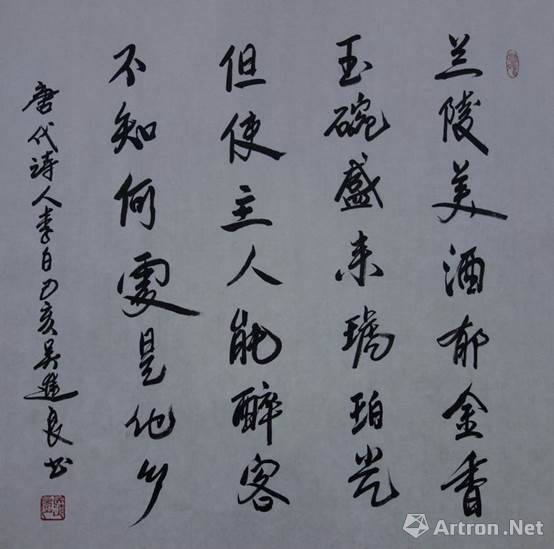 兰陵美酒郁金香
玉碗盛来琥珀光
但使主人能醉客
不知何處是他乡
唐代诗人李白丁亥吴進良书
Artron.Net